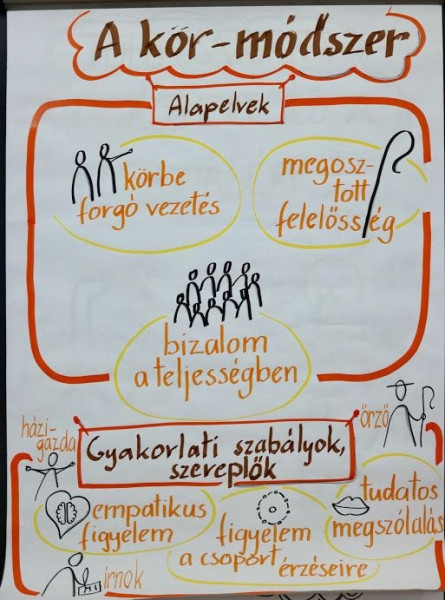 A kör-módszer
Alapelvek
körbe
forgó vezetés
megosz-
tott
felelősség
bizalom
a teljességben
házi-
gazda
őrző
Gyakorlati szabályok,
szereplők
empatikus
figyelem
figyelem
a csoport érzéseire
tudatos
megszólalás
írnok